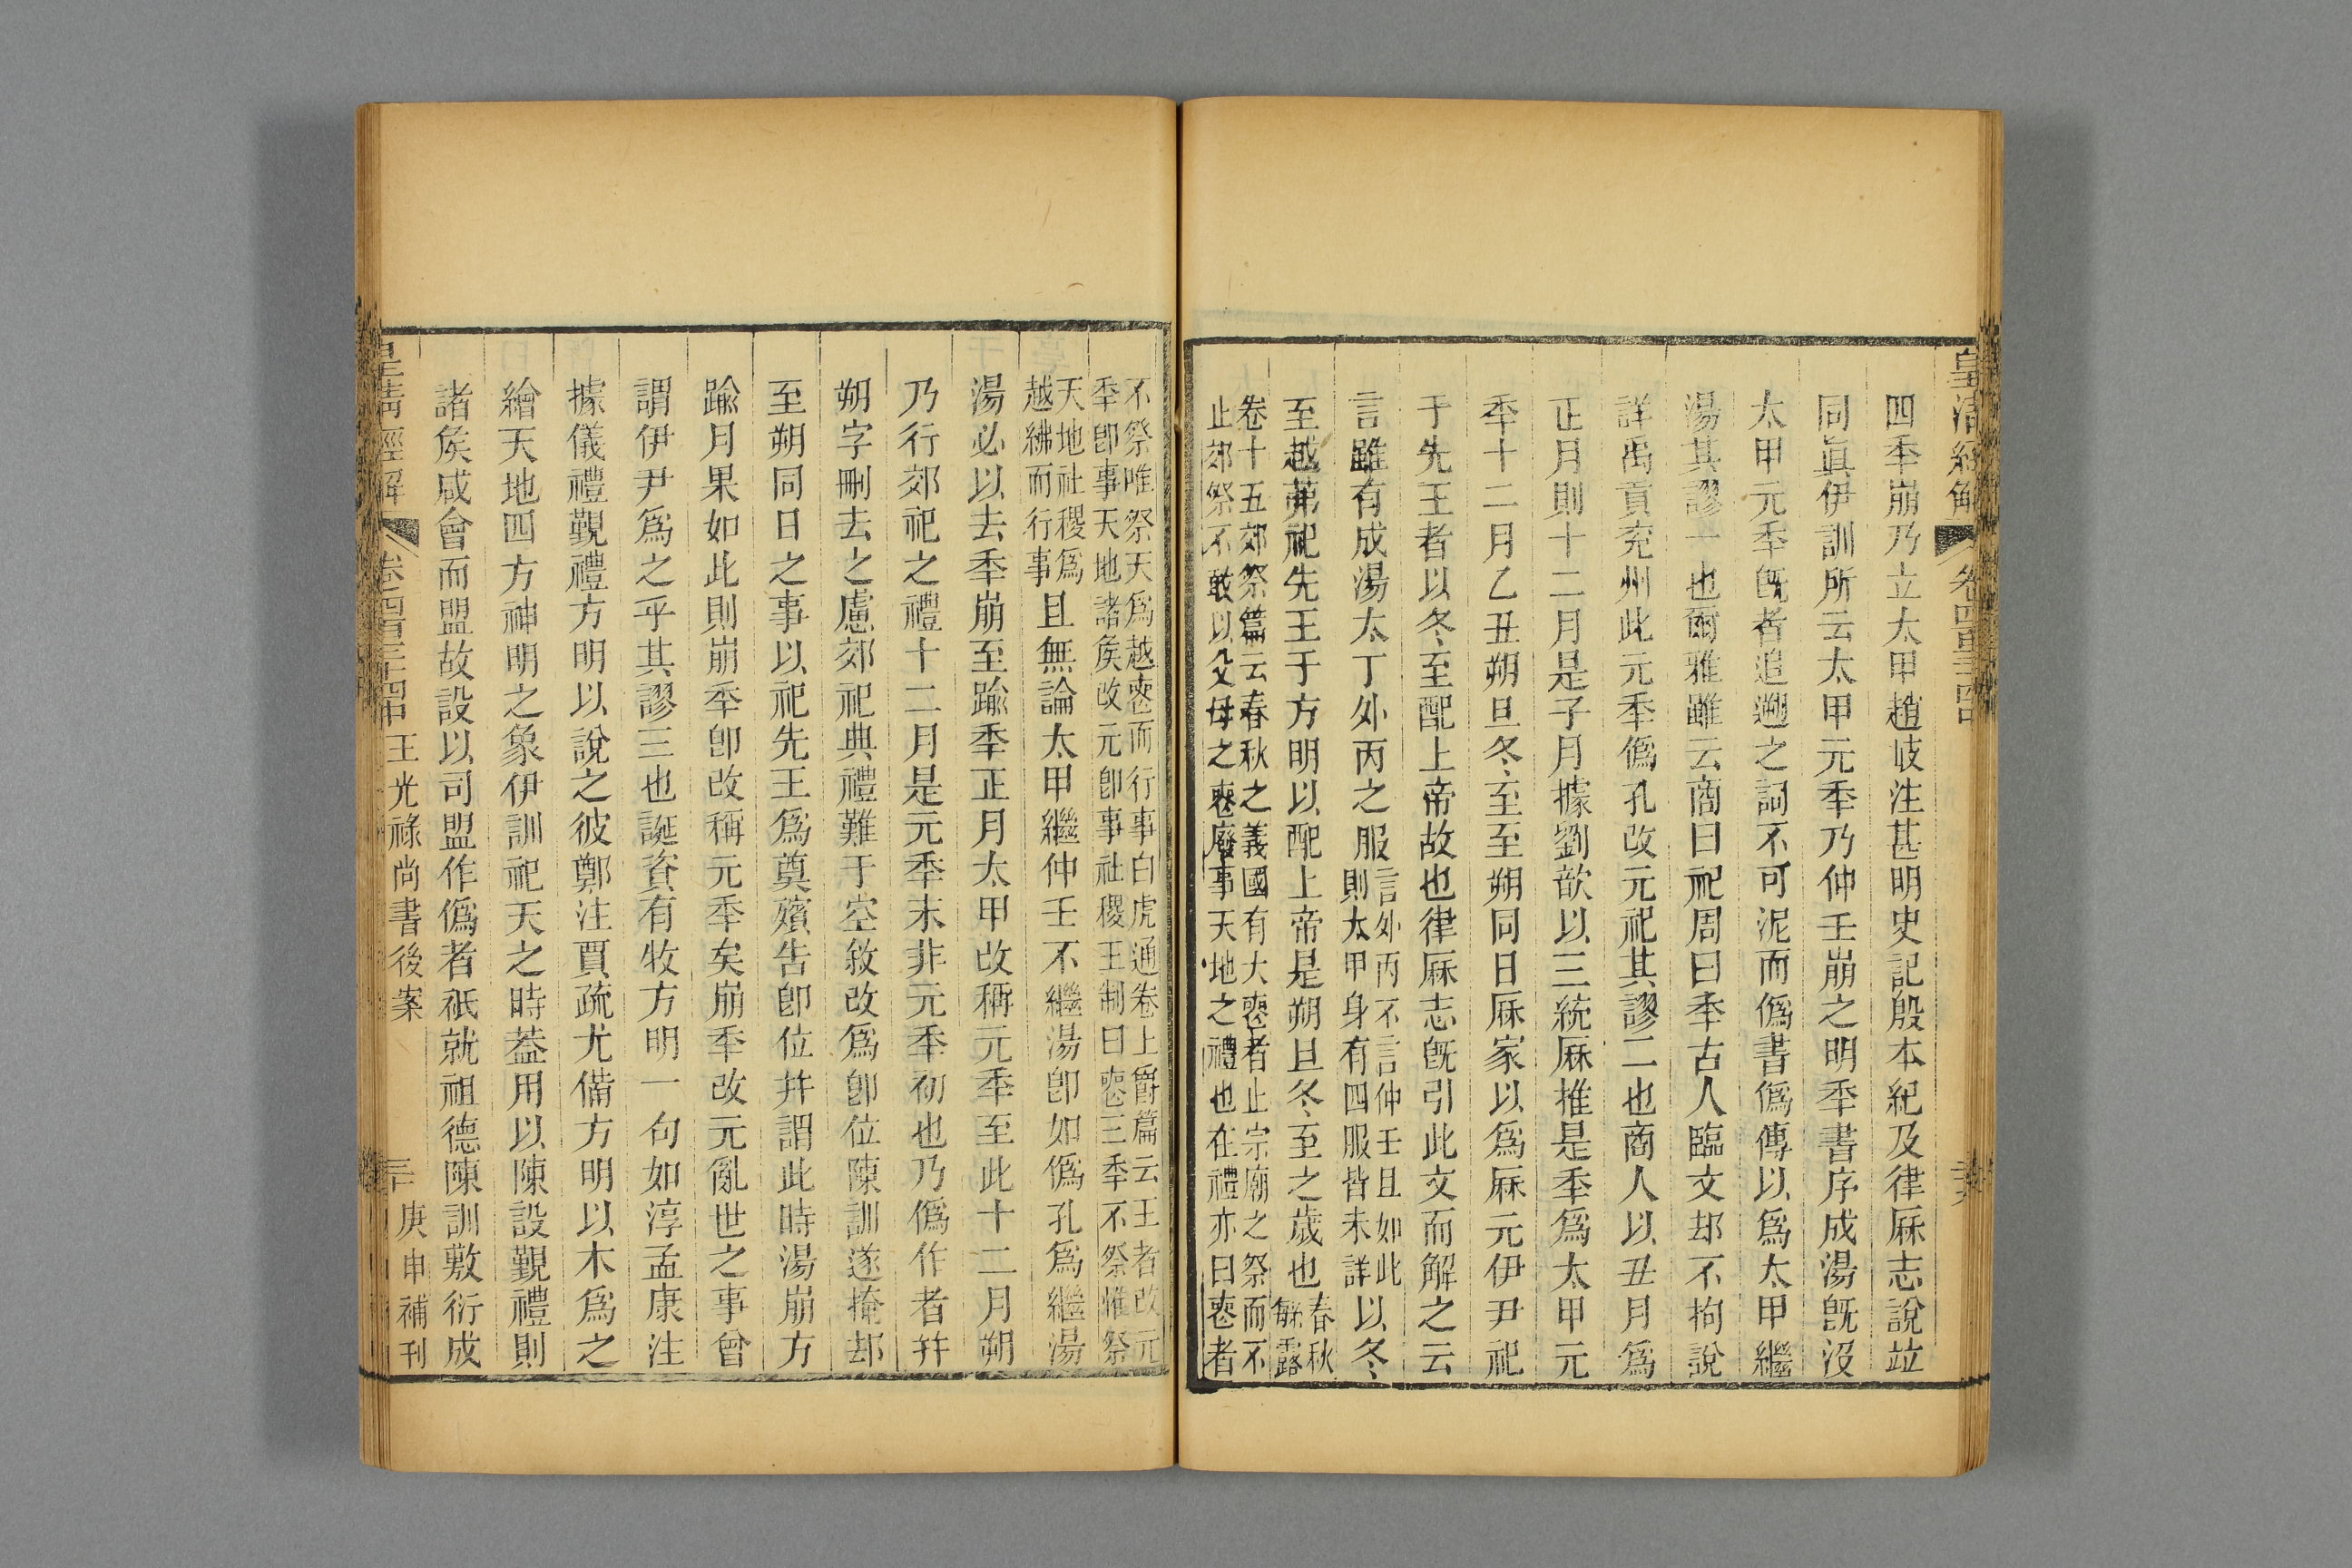 皇清經解 卷四百三十四中
四秊崩乃立太甲趙岐注甚明史記殷本紀及律厤志說竝
同眞伊訓所云太甲元秊乃仲壬崩之明秊書序成湯旣沒
太甲元秊旣者追遡之詞不可泥而僞書僞傳以爲太甲繼
湯其謬一也爾雅雖云商曰祀周曰秊古人臨文却不拘說
詳禹貢兖州此元秊僞孔改元祀其謬二也商人以丑月爲
正月則十二月是子月據劉歆以三統厤推是秊爲太甲元
秊十二月乙丑朔旦冬至至朔同日厤家以爲厤元伊尹祀
于先王者以冬至配上帝故也律厤志旣引此文而解之云
言雖有成湯太丁外丙之服言外丙不言仲壬且如此則太甲身有四服皆未詳以冬
至越茀祀先王于方明以配上帝是朔旦冬至之歲也春秋繁露
卷十五郊祭篇云春秋之義國有大喪者止宗廟之祭而不
止郊祭不敢以父母之喪廢事天地之禮也在禮亦曰喪者
不祭唯祭天爲越喪而行事白虎通卷上爵篇云王者改元
秊卽事天地諸矦改元卽事社稷王制曰喪三秊不祭惟祭
天地社稷爲越紼而行事且無論太甲繼仲壬不繼湯卽如僞孔爲繼湯
湯必以去秊崩至踰秊正月太甲改稱元秊至此十二月朔
乃行郊祀之禮十二月是元秊末非元秊初也乃僞作者幷
朔字刪去之慮郊祀典禮難于空敘改爲卽位陳訓遂掩却
至朔同日之事以祀先王爲奠殯告卽位幷謂此時湯崩方
踰月果如此則崩秊卽改稱元秊矣崩秊改元亂世之事曾
謂伊尹爲之乎其謬三也誕資有牧方明一句如淳孟康注
據儀禮覲禮方明以說之彼鄭注賈疏尤備方明以木爲之
繪天地四方神明之象伊訓祀天之時葢用以陳設覲禮則
諸矦咸會而盟故設以司盟作僞者衹就祖德陳訓敷衍成
皇清經解 卷四百三十四中 王光祿尚書後案 庚申補刊